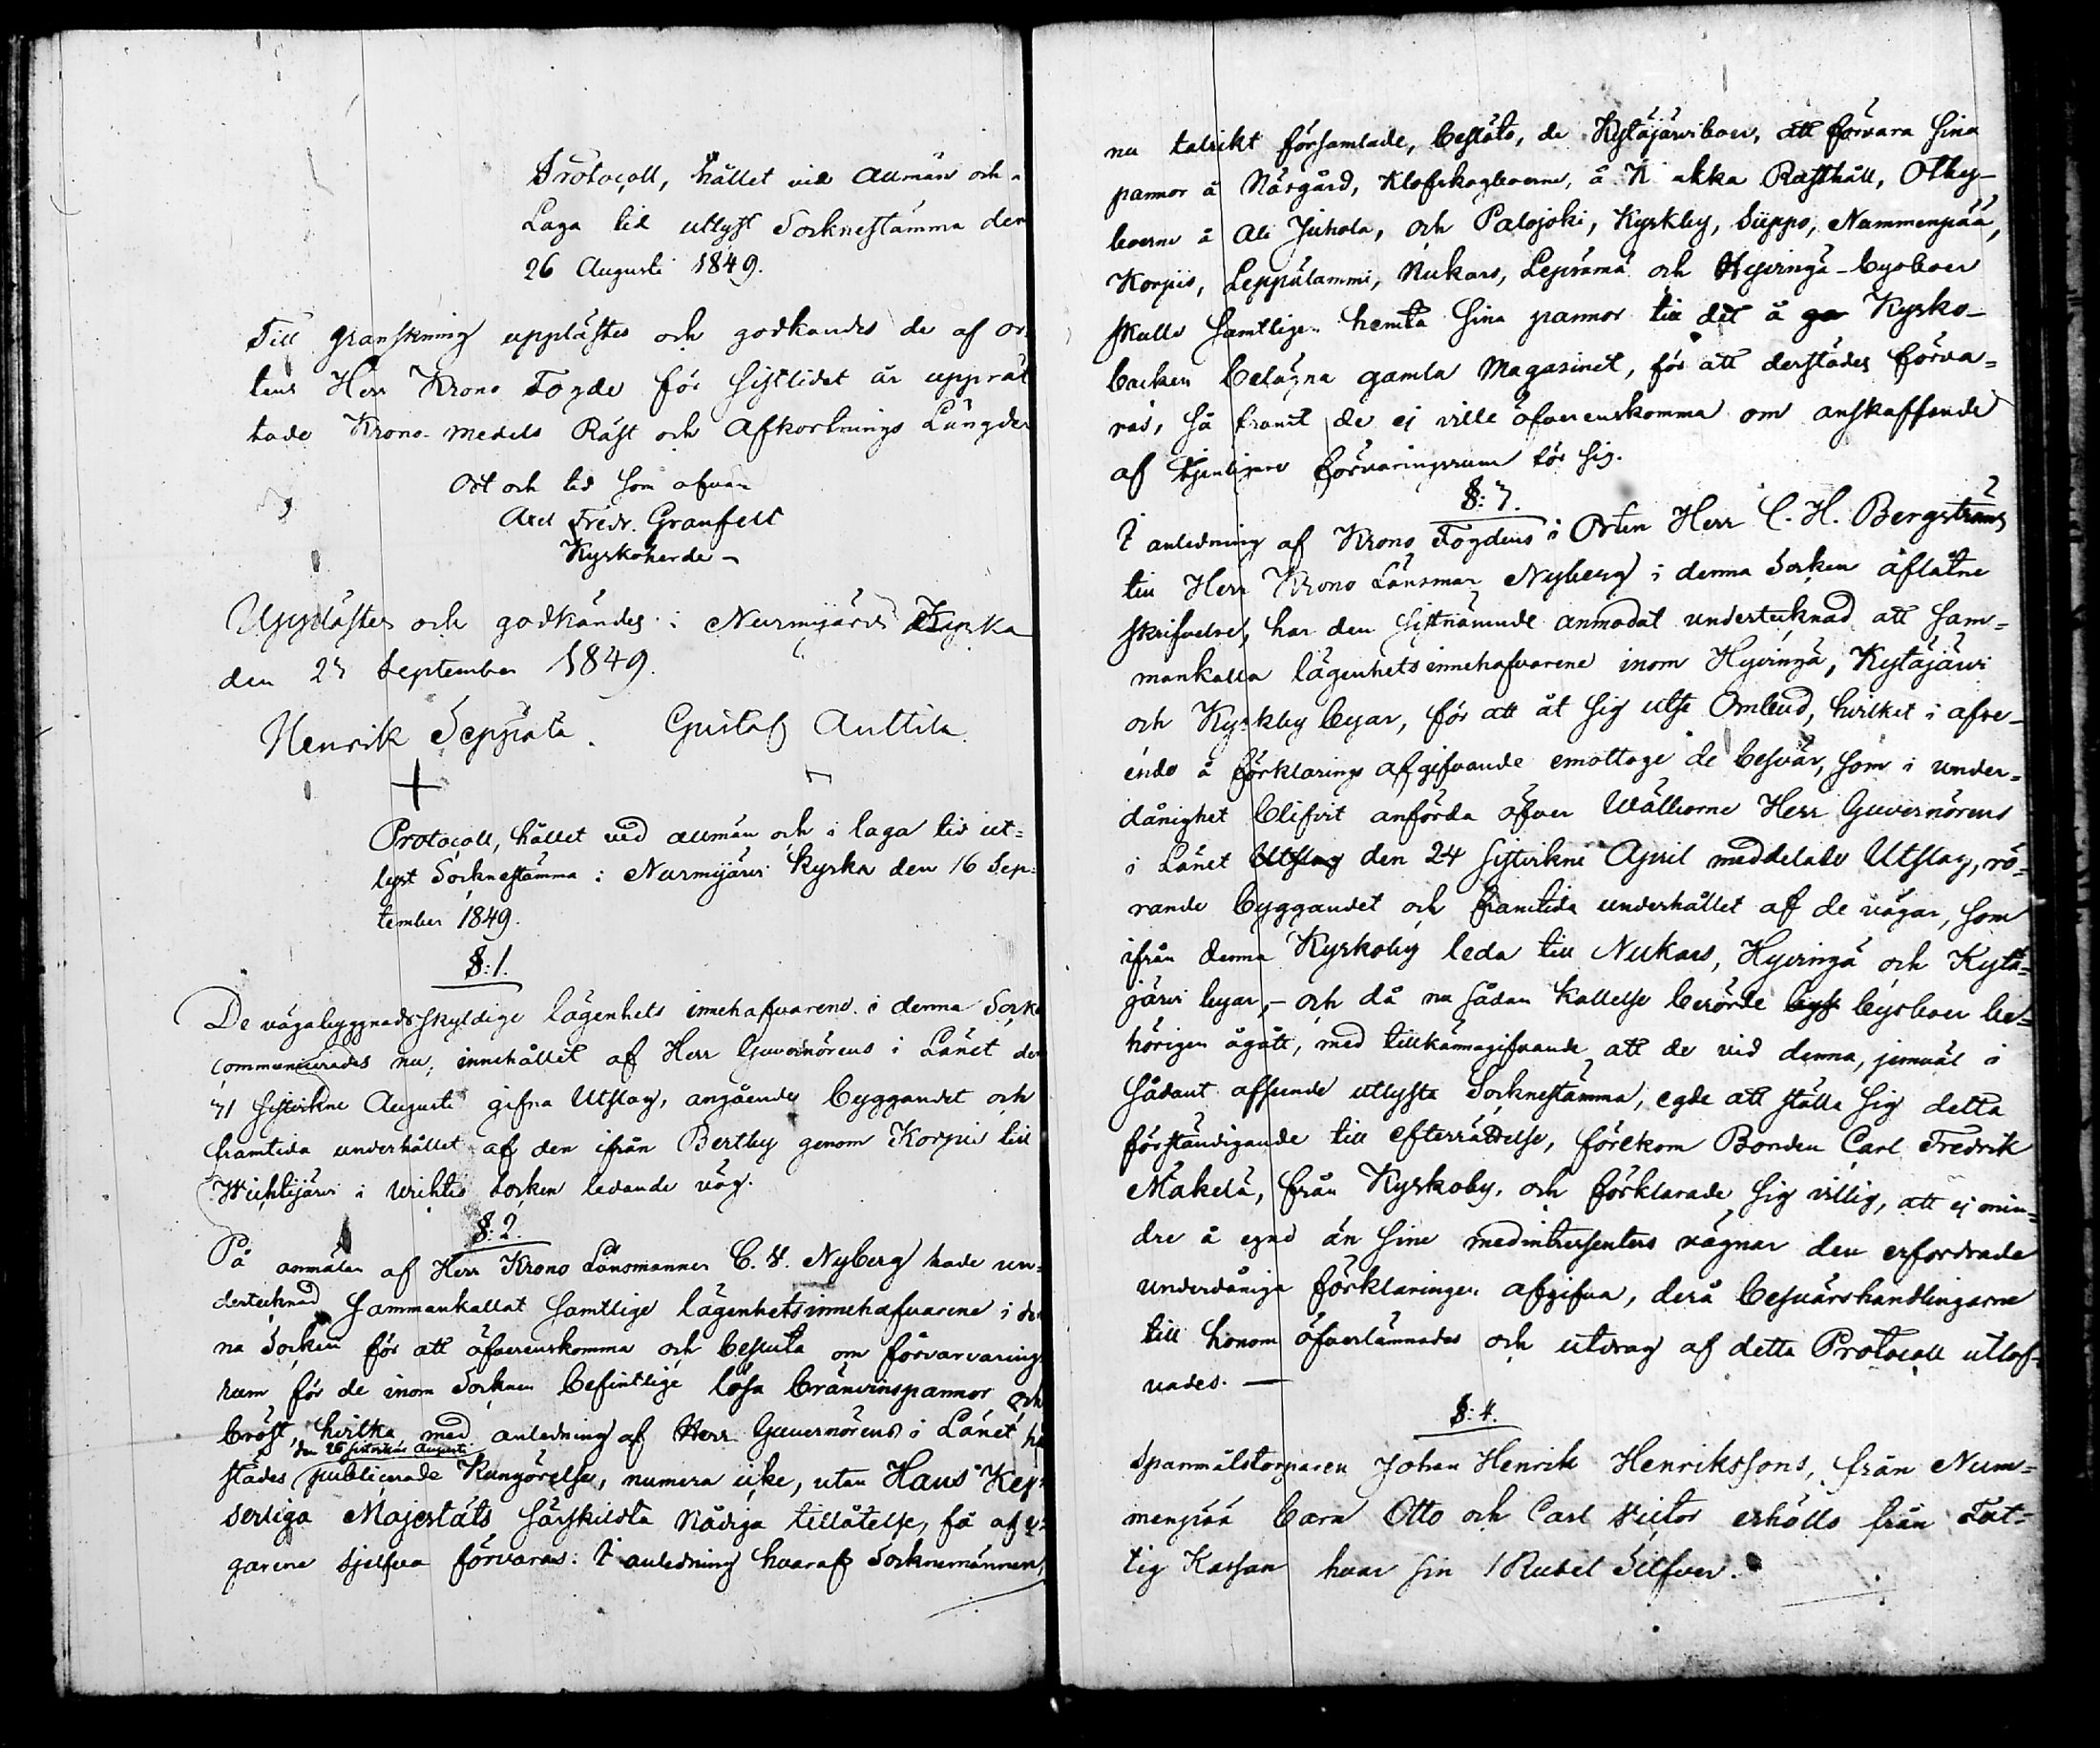 Protocoll, hållet vid Allmän och i
Laga tid utlyst Sockneståmma den
26 Augusti 1849.
Till granskning upplästes och godkändes de af or-
tens Herr Krono Fogde för sistlidet år upprät
tade Krono-medels Räst och Afkortnings Längder
Ort och tid som ofvan
Axel Fredr. Granfelt
Kyrkoherde
Upplästes och godkändes i Nurmijärvi Kyrka
den 23 September 1849.
Henrik Seppälä. Gustaf Anttila.
Protocoll, hållet vid allmän och i laga tid ut=
lyst Sockneståmma i Nurmijärvi Kyrka den 16 Sep=
tember 1849.
§: 1.
De vägabyggnadsskyldige lägenhets innehafvarene i denna Sock
communicerades nu, innehållet af Herr Guvernörens i Länet den
31 sistvikne Augusti gifna Utslag, angående byggandet och
framtida underhållet af den ifrån Bertby genom Korpis till
Wichtijärvi i Wichtis Socken ledande väg.
§: 2.
På anmälan af Herr Krono Länsmannen C. F. Nyberg hade un=
dertecknad sammankallat samtlige lägenhetsinnehafvarene i den
na Socken för att öfverenskomma och besluta om förvarvarings
rum för de inom Socknen befintlige lösa bränvinspannor och
bröst, hvilka med anledning af Herr Guvernörens i Länet hä
den 25 sistvikne Augusti
städes publicerade Kungörelse, numera icke, utan Hans Kej=
serliga Majestäts särskildta Nådiga tillåtelse, få af e=
garene sjelfva förvaras: I anledning hvaraf Socknemännen,
nu talrikt församlade, beslöto, de Kytäjärviboer, att förvara sina
pannor å Näsgård, Klofskogboerne, å Kiukka Rusthåll, Othy-
boerne å Ali Juhola, och Palojoki, Kyrkby, Siippo, Nummenpää,
Korpis, Leppälammi, Nukars, Lepsämä och Hyvingä-byaboer
skulle samtligen hemta sina pannor till det å ga Kyrko-
backen belägna gamla Magasinet, för att derstädes förva=
ras, så framt de ej ville öfverenskomma om anskaffande
af tjenligare förvaringsrum för sig.
§: 3.
I anledning af Krono Fogdens i Orten Herr C. H. Bergströms
till Herr Krono Länsman Nyberg i denna Socken aflåtne
skrifvelse, har den sistnämnde anmodat undertecknad att sam=
mankalla lägenhetsinnehafvarene inom Hyvingä, Kytäjärvi
och Kyrkby byar, för att åt sig utse Ombud, hvilket i afse-
ende å förklarings afgifvande emottoge de besvär, som i under=
dånighet blifvit anförda öfver Wälborne Herr Guvernörens
i Länet Utslag den 24 sistvikne April meddelade Utslag, rö=
rande byggandet och framtida underhållet af de vägar, som
ifrån denna Kyrkoby leda till Nukars, Hyvingä och Kytä=
järvi byar, – och då nu sådan kallelse berörde bys byeboer be=
hörigen ågått, med tillkännagifvande att de vid denna, jemväl i
sådant afseende utlysta Sockneståmma, egde att ställa sig detta
förständigande till efterrättelse, förekom Bonden Carl Fredrik
Mäkelä, från Kyrkoby, och förklarade sig villig, att ej min=
dre å egne än sine medintressenters vägnar den erfordrade
underdåniga förklaringen afgifva, derå besvärshandlingarne
till honom öfverlämnades och utdrag af detta Protocoll utlof=
vades. —
§: 4.
Spanmålstorparen Johan Henrik Henrikssons, från Num=
menpää barn Otto och Carl Victor erhöllo från Fat=
tig Kassan hvar sin 1 Rubel Silfver.